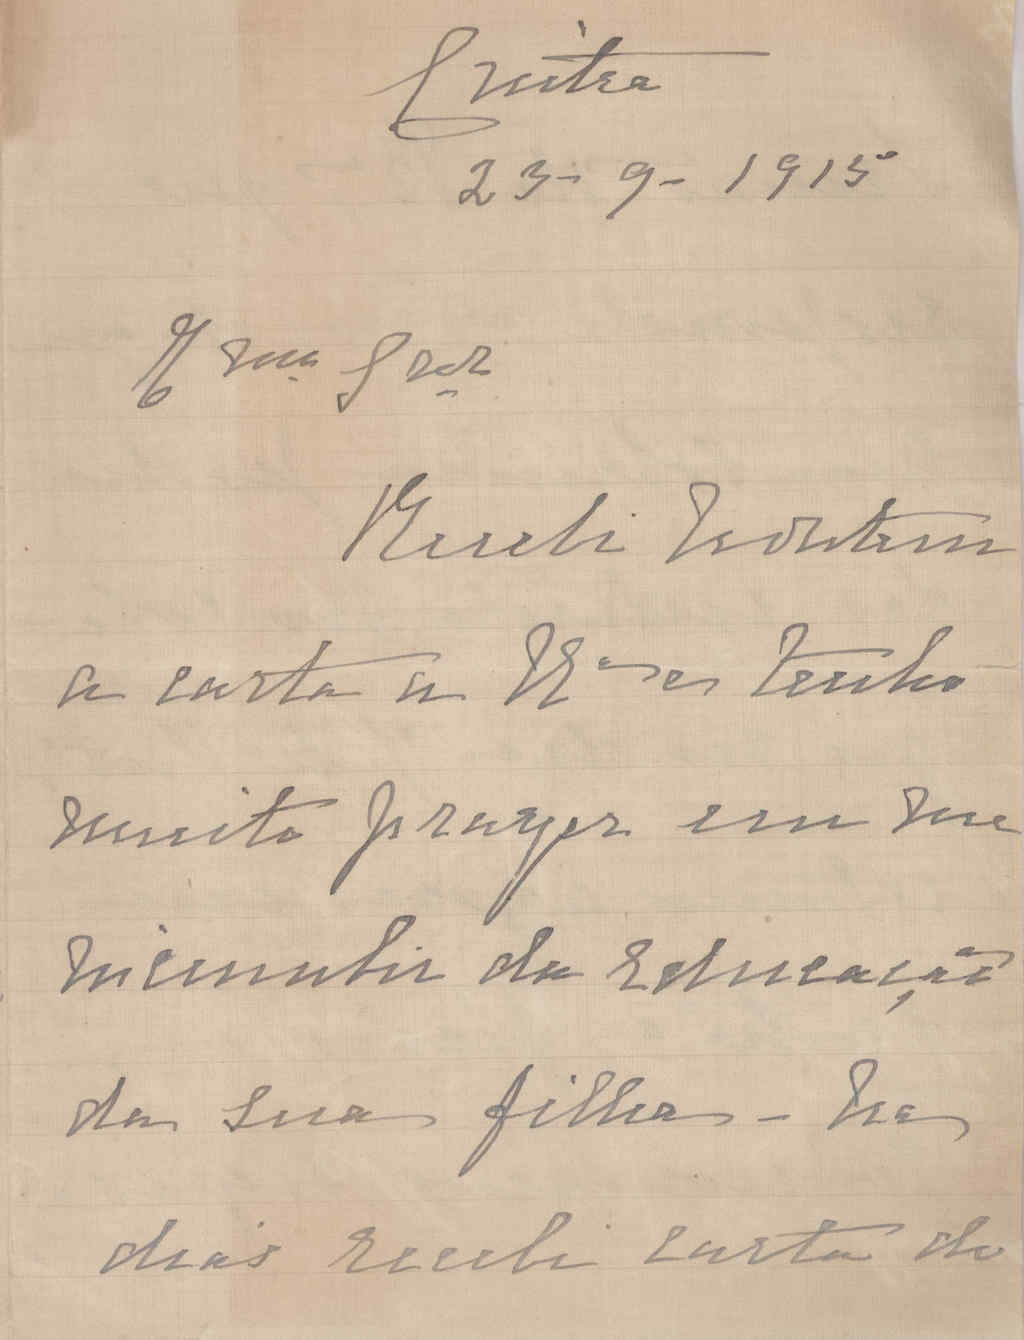 Cintra
23-9-1915
Exma Snra
Recebi hontem
a carta a V. Exa e tenho
muito prazer em me
incumbir da educação
da sua filha - ha
dias recebi carta do